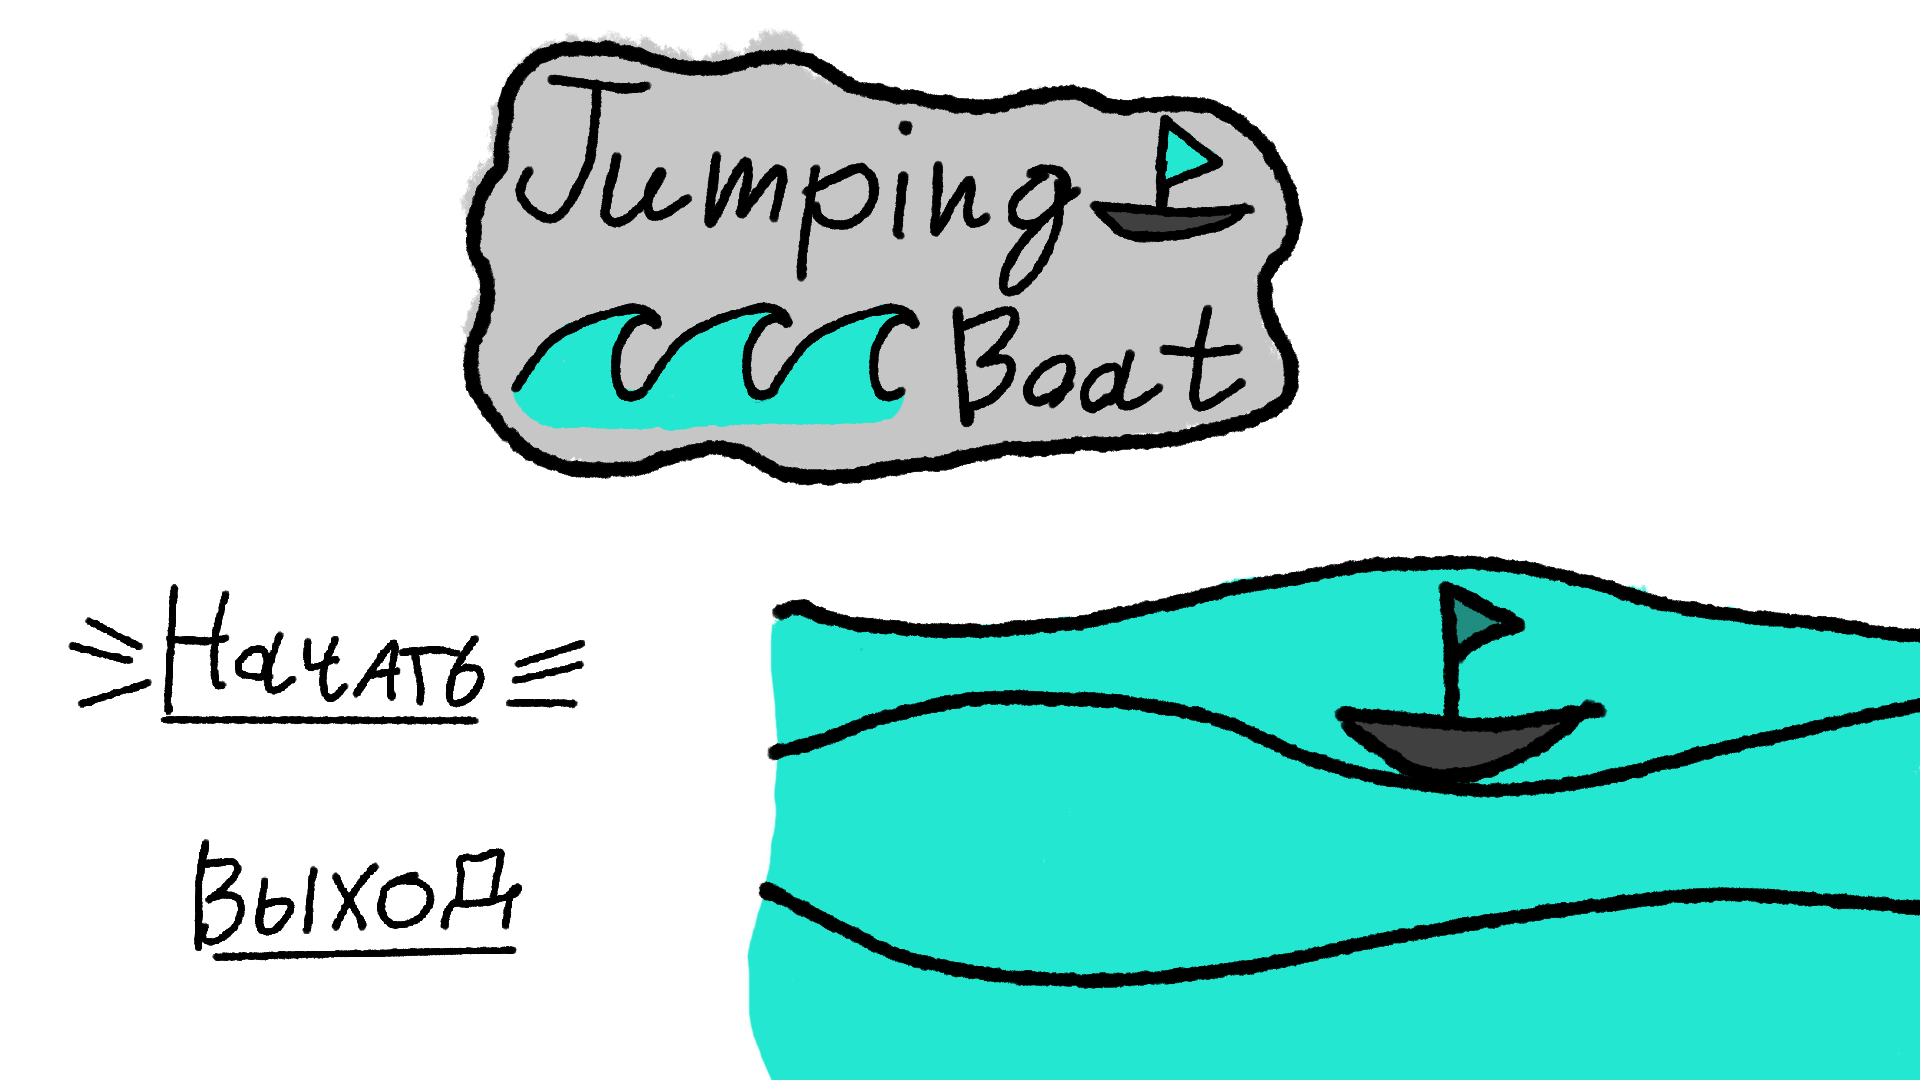 Jumping
Boat
Начать
Выход